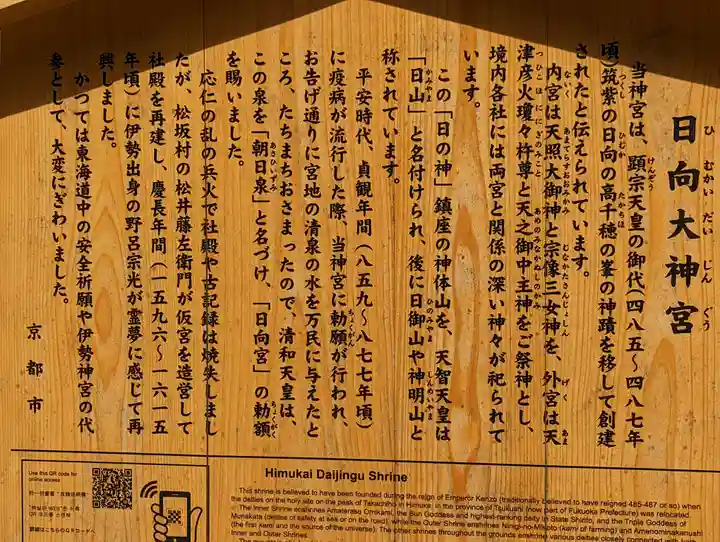 日向大神宮
ひ むかい だい じん ぐう
当神宮は、顕宗天皇の御代(四八五〜四八七年
けんぞう
頃)筑紫の日向の高千穂の峯の神蹟を移して創建
つくし ひむか たかちほ
されたと伝えられています。
内宮は天照大御神と宗像三女神を、外宮は天
ないく あまてらすおおみかみ むなかたさんじょしん げく あま
津彦火瓊々杵尊と天之御中主神をご祭神とし、
つひこほににぎのみこと あめのみなかぬしのかみ
境内各社には両宮と関係の深い神々が祀られて
います。
この「日の神」鎮座の神体山を、天智天皇は
「日山」と名付けられ、後に日御山や神明山と
かみやま ひのみやま しんめいやま
称されています。
平安時代、貞観年間(八五九〜八七七年頃)
に疫病が流行した際、当神宮に勅願が行われ、
ちょくがん
お告げ通りに宮地の清泉の水を万民に与えたと
ころ、たちまちおさまったので、清和天皇は、
この泉を「朝日泉」と名づけ、「日向宮」の勅額
あさひいずみ ちょくがく
を賜いました。
応仁の乱の兵火で社殿や古記録は焼失しまし
たが、松坂村の松井藤左衛門が仮宮を造営して
社殿を再建し、慶長年間(一五九六〜一六一五
年頃)に伊勢出身の野呂宗光が霊夢に感じて再
興しました。
かつては東海道中の安全祈願や伊勢神宮の代
参として、大変にぎわいました。
京都市
Use this QR code for
online access
Himukai Daijingu Shrine
This shrine is believed to have been founded during the reign of Emperor Kenzo (traditionally believed to have reigned 485-487 or so) when
the deities on the holy site on the peak of Takachiho in Himuka in the province of Tsukushi (now part of Fukuoka Prefecture) was relocated.
The Inner Shrine enshrines Amaterasu Omikami, the Sun Goddess and highest-ranking deity in State Shinto, and the Triple Goddess of
Munakata (deities of safety at sea or on the road), while the Outer Shrine enshrines Ninigi-no-Mikoto (kami of farming) and Amenominakanushi
(the first kami and the source of the universe). The other shrines throughout the grounds enshrine various deities closely connected with both
Inner and Outer Shrines.